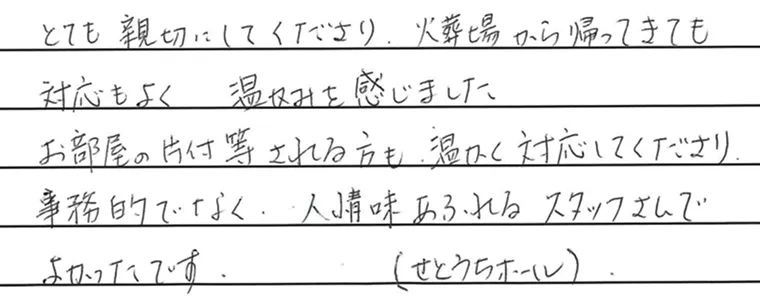 とても親切にしてくださり、火葬場から帰ってきても
対応もよく 温かみを感じました
お部屋の片付等される方も、温かく対応してくださり、
事務的でなく、人情味あふれるスタッフさんで
よかったです。 （せとうちホール）．